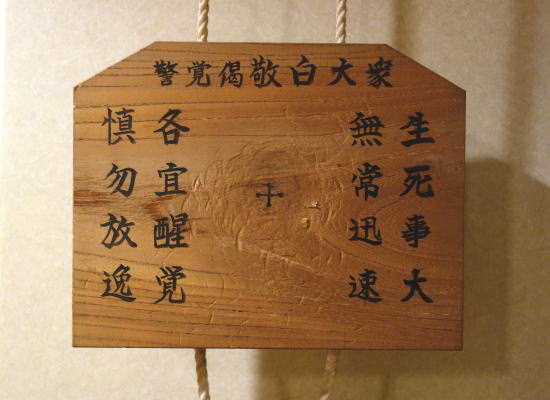 警覚偈敬白大衆
生死事大
無常迅速
各宜醒覚
慎勿放逸